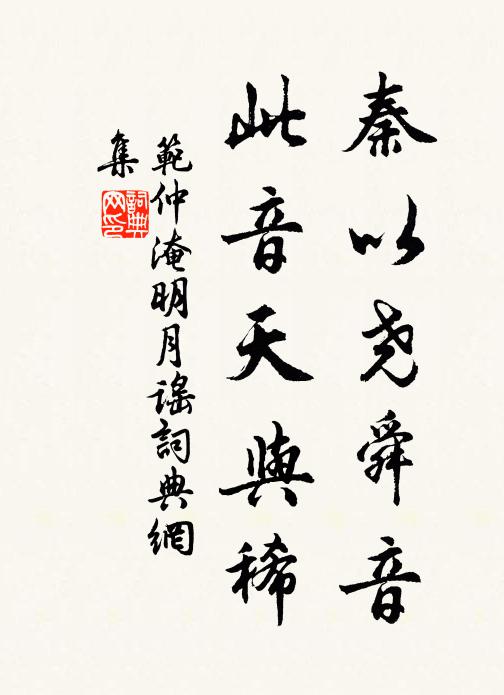 秦以尧舜音
此音天與稀
範仲淹明月謠詞典網
集
詞典
网印